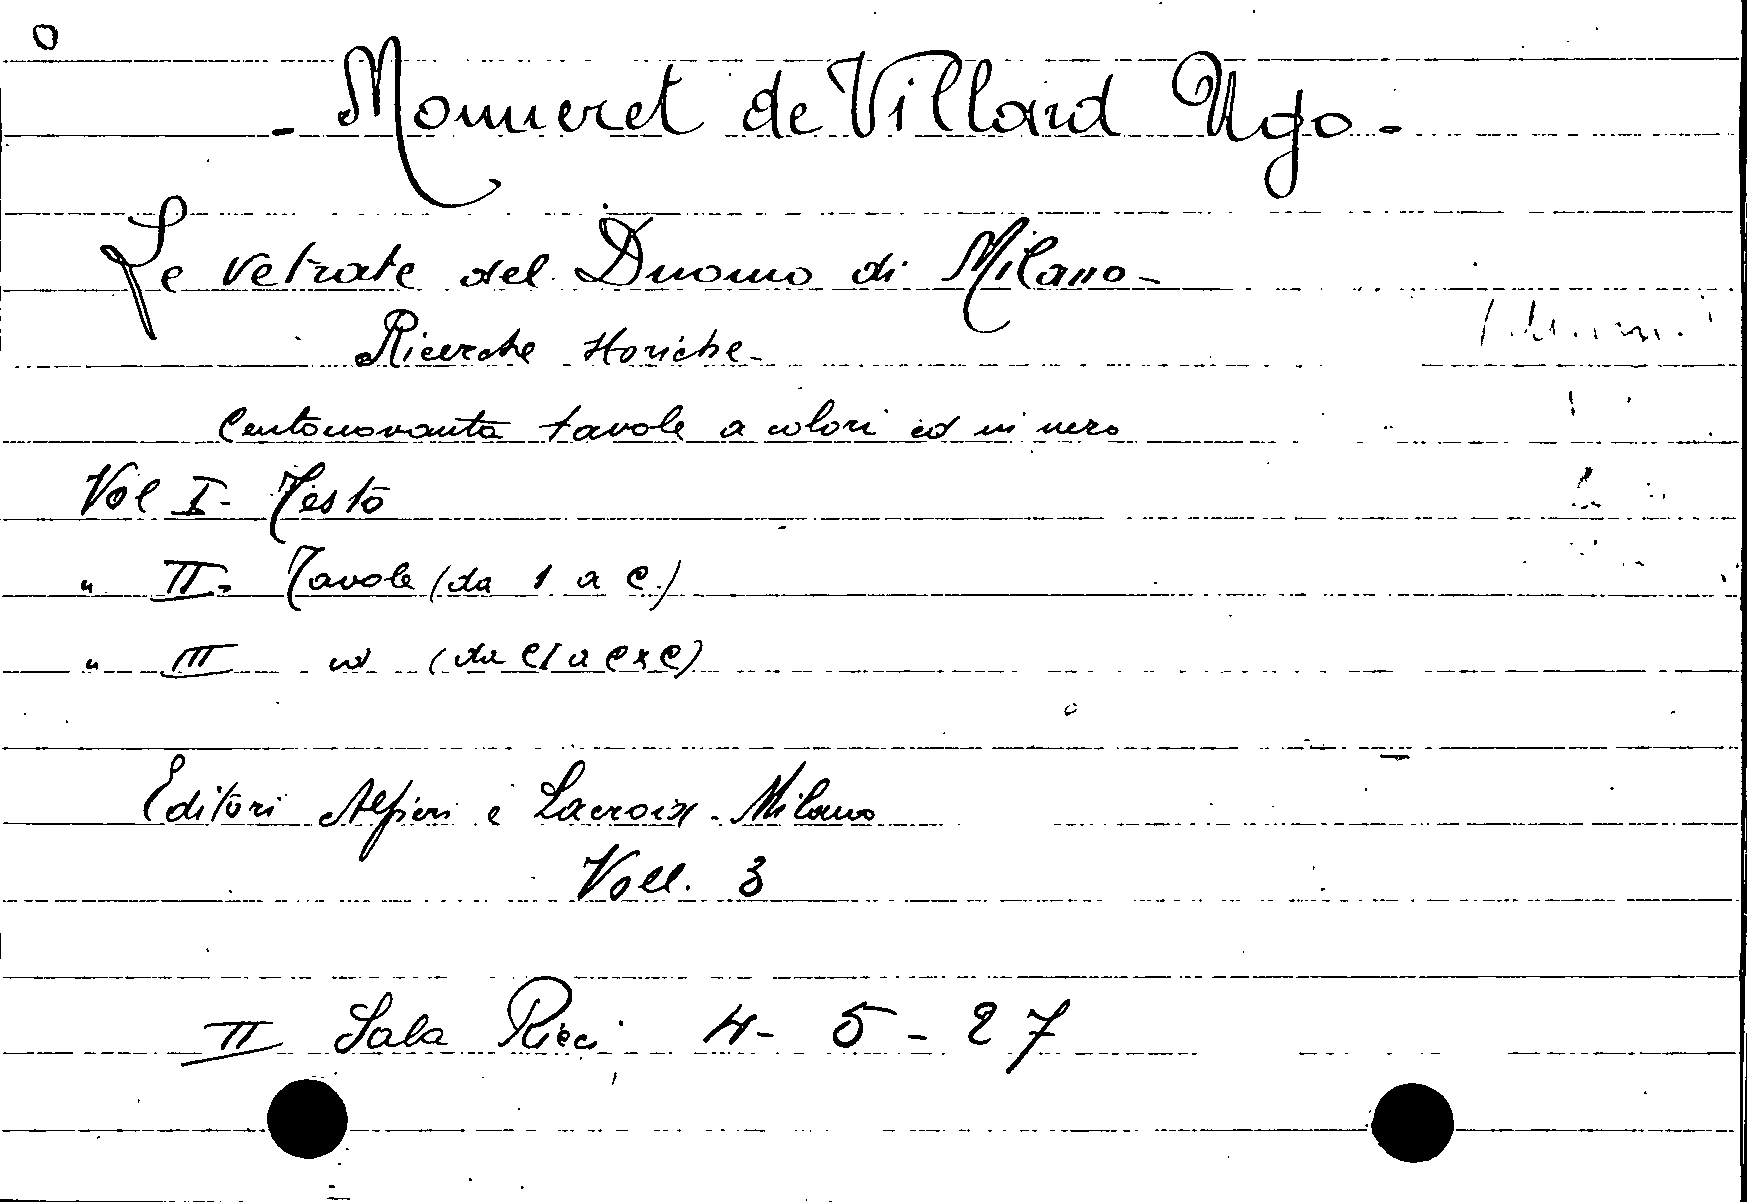 - Monneret de Villard Ugo -
Le vetrate del Duomo di Milano -
Ricerche storiche -
Centonovanta tavole a colori ed in nero
Vol I - Testo
" II - Tavole (da 1 a C.)
" III id (da CI a CXC)
Editori Alfieri e Lacroix - Milano
Voll. 3
II Sala Ricci 4 - 5 - 27